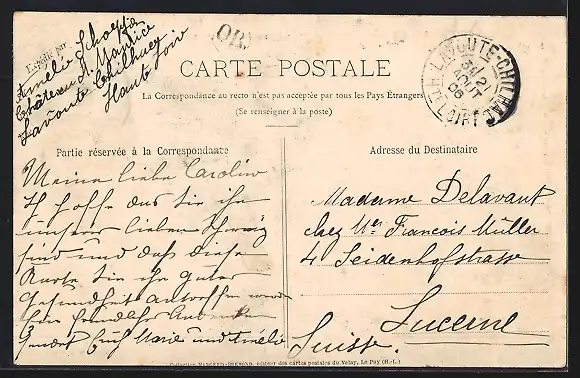 Expédié par
Amélie Schoepfer
Château St. Maurice
Lavoute Chilhac
Haute Loire
(OR)
CARTE POSTALE
La Correspondance au recto n'est pas acceptée par tous les Pays Étrangers
(Se renseigner à la poste)
LAVOUTE-CHILHAC
AOUT
06
Partie réservée à la Correspondance
Adresse du Destinataire
Meine liebe Carolin
Ich hoffe das Sie in
unserer lieben Schweiz
sind und daß diese
Karte Sie in guter
Gesundheit antreffen
Gruss
Euch Marie und Amélie
Madame Delavant
chez Mr. Francois Müller
4 Seidenhofstrasse
Lucerne
Suisse.
éditeur des cartes postales du Velay, Le Puy (H.-L.)